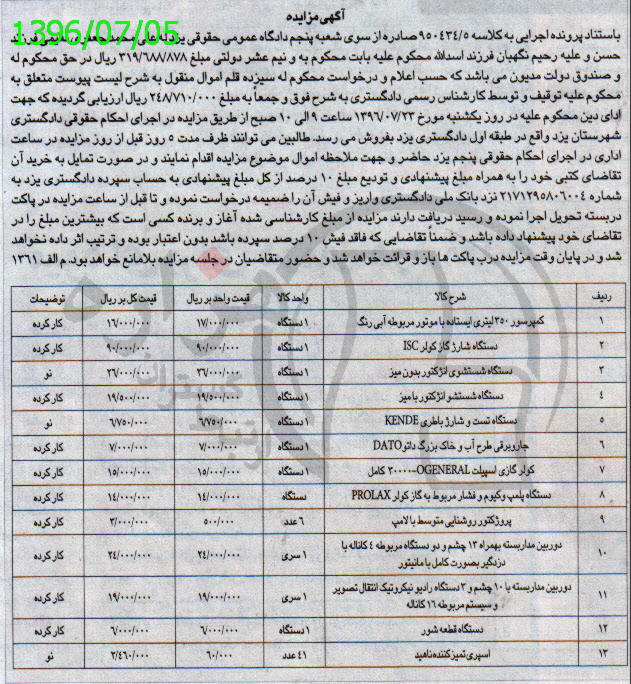 آگهی مزایده
1396/07/05
باستناد پرونده اجرایی به کلاسه ۹۵۰۴۳۴/۵ صادره از سوی شعبه پنجم دادگاه عمومی حقوقی یزد له علی محمد جعفری ندیمی فرزند
حسن و علیه رحیم نگهبان فرزند اسدالله محکوم علیه بابت محکوم به و نیم عشر دولتی مبلغ ۳۱۹/۶۸۸/۸۷۸ ریال در حق محکوم له
و صندوق دولت مدیون می باشد که حسب اعلام و درخواست محکوم له سیزده قلم اموال منقول به شرح لیست پیوست متعلق به
محکوم علیه توقیف و توسط کارشناس رسمی دادگستری به شرح فوق و جمعاً به مبلغ ۲۴۸/۷۱۰/۰۰۰ ریال ارزیابی گردیده که جهت
ادای دین محکوم علیه در روز یکشنبه مورخ ۱۳۹۶/۰۷/۲۳ ساعت ۹ الی ۱۰ صبح از طریق مزایده در اجرای احکام حقوقی دادگستری
شهرستان یزد واقع در طبقه اول دادگستری یزد بفروش می رسد. طالبین می توانند ظرف مدت ۵ روز قبل از روز مزایده در ساعت
اداری در اجرای احکام حقوقی پنجم یزد حاضر و جهت ملاحظه اموال موضوع مزایده اقدام نمایند و در صورت تمایل به خرید آن
تقاضای کتبی خود را به همراه مبلغ پیشنهادی و تودیع مبلغ ۱۰ درصد از کل مبلغ پیشنهادی به حساب سپرده دادگستری یزد به
شماره ۲۱۷۱۲۹۵۸۰۶۰۰۴ نزد بانک ملی دادگستری واریز و فیش آن را ضمیمه درخواست نموده و تا قبل از ساعت مزایده در پاکت
دربسته تحویل اجرا نموده و رسید دریافت دارند مزایده از مبلغ کارشناسی شده آغاز و برنده کسی است که بیشترین مبلغ را در
تقاضای خود پیشنهاد داده باشد و ضمناً تقاضایی که فاقد فیش ۱۰ درصد سپرده باشد بدون اعتبار بوده و ترتیب اثر داده نخواهد
شد و در پایان وقت مزایده درب پاکت ها باز و قرائت خواهد شد و حضور متقاضیان در جلسه مزایده بلامانع خواهد بود. م الف ۱۳۶۱
ردیف شرح کالا واحد کالا قیمت واحد بر ریال قیمت کل بر ریال توضیحات
۱ کمپرسور ۳۵۰ لیتری ایستاده با موتور مربوطه آبی رنگ ۱ دستگاه ۱۷/۰۰۰/۰۰۰ ۱۶/۰۰۰/۰۰۰ کارکرده
۲ دستگاه شارژ گاز کولر ISC ۱ دستگاه ۹۰/۰۰۰/۰۰۰ ۹۰/۰۰۰/۰۰۰ کارکرده
۳ دستگاه شستشوی انژکتور بدون میز ۱ دستگاه ۲۶/۰۰۰/۰۰۰ ۲۶/۰۰۰/۰۰۰ نو
۴ دستگاه شستشو انژکتور با میز ۱ دستگاه ۱۹/۵۰۰/۰۰۰ ۱۹/۵۰۰/۰۰۰ کارکرده
۵ دستگاه تست و شارژ باطری KENDE ۱ دستگاه ۶/۷۵۰/۰۰۰ ۶/۷۵۰/۰۰۰ نو
۶ جاروبرقی طرح آب و خاک بزرگ داتو DATO ۱ دستگاه ۷/۰۰۰/۰۰۰ ۷/۰۰۰/۰۰۰ کارکرده
۷ کولر گازی اسپیلت OGENERAL-۳۰۰۰۰ کامل ۱ دستگاه ۱۵/۰۰۰/۰۰۰ ۱۵/۰۰۰/۰۰۰ کارکرده
۸ دستگاه پلمپ وکیوم و فشار مربوط به گاز کولر PROLAX دستگاه ۱۴/۰۰۰/۰۰۰ ۱۴/۰۰۰/۰۰۰ کارکرده
۹ پروژکتور روشنایی متوسط با لامپ ۶ عدد ۵۰۰/۰۰۰ ۳/۰۰۰/۰۰۰ کارکرده
۱۰ دوربین مداربسته بهمراه ۱۳ چشم و دو دستگاه مربوطه ۴ کاناله با ۱ سری ۲۴/۰۰۰/۰۰۰ ۲۴/۰۰۰/۰۰۰ کارکرده
دزدگیر بصورت کامل با مانیتور
۱۱ دوربین مداربسته با ۱۰ چشم و ۳ دستگاه رادیو نیکرونیک انتقال تصویر ۱ سری ۱۹/۰۰۰/۰۰۰ ۱۹/۰۰۰/۰۰۰ کارکرده
و سیستم مربوطه ۱۶ کاناله
۱۲ دستگاه قطعه شور ۱ دستگاه ۶/۰۰۰/۰۰۰ ۶/۰۰۰/۰۰۰ کارکرده
۱۳ اسپری تمیز کننده ناهید ۴۱ عدد ۶۰/۰۰۰ ۲/۴۶۰/۰۰۰ نو